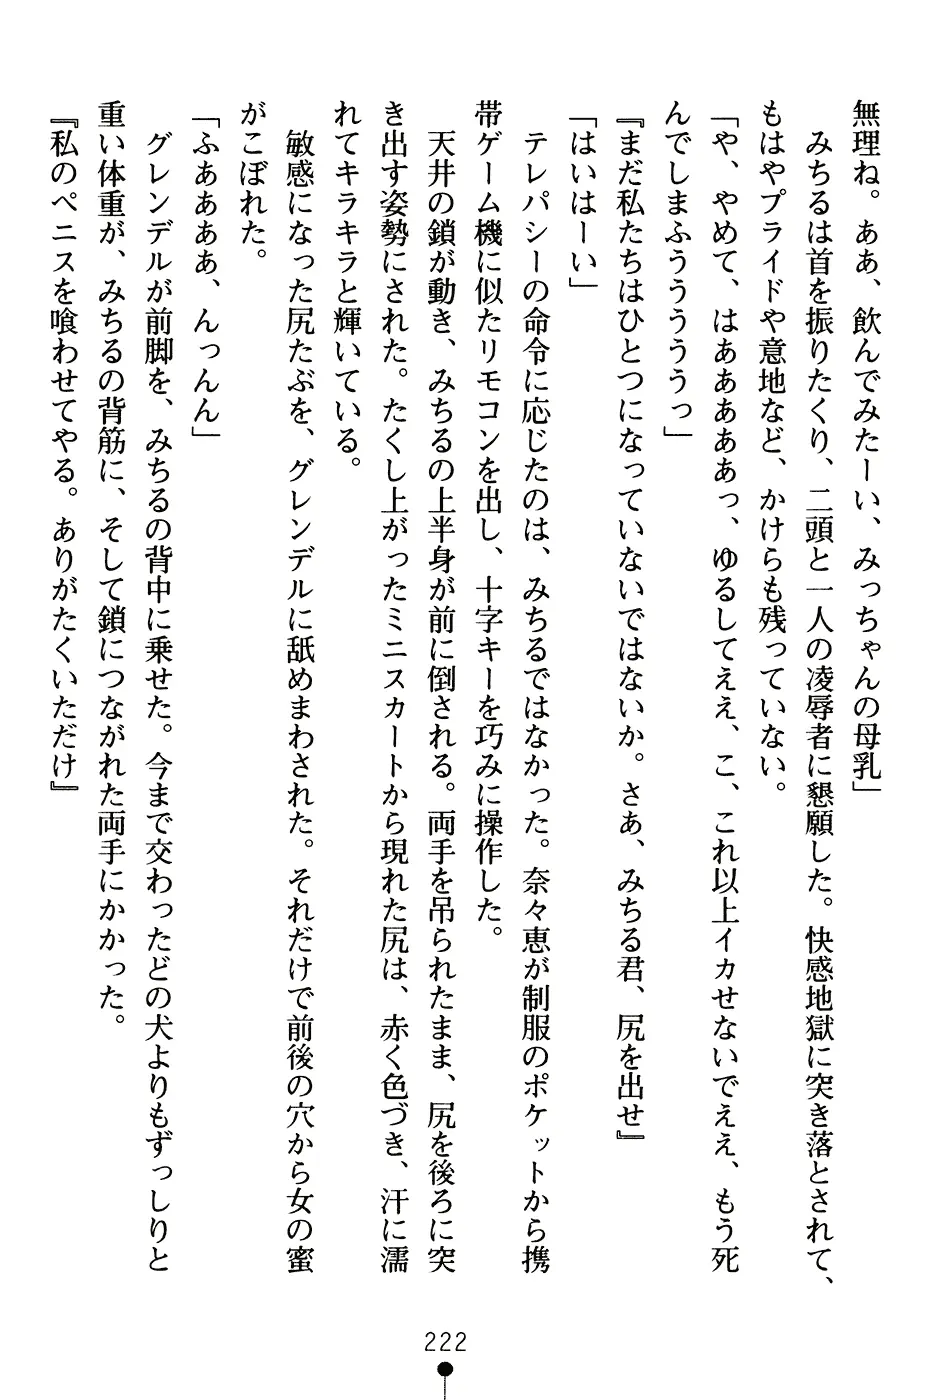 無理ね。ああ、飲んでみたーい、みっちゃんの母乳」
みちるは首を振りたくり、二頭と一人の凌辱者に懇願した。快感地獄に突き落とされて、
もはやプライドや意地など、かけらも残っていない。
「や、やめて、はああああぁっ、ゆるしてええ、こ、これ以上イカせないでええ、もう死
んでしまふうううっ」
『まだ私たちはひとつになっていないではないか。さあ、みちる君、尻を出せ』
「はいはーい」
テレパシーの命令に応じたのは、みちるではなかった。奈々恵が制服のポケットから携
帯ゲーム機に似たリモコンを出し、十字キーを巧みに操作した。
天井の鎖が動き、みちるの上半身が前に倒される。両手を吊られたまま、尻を後ろに突
き出す姿勢にされた。たくし上がったミニスカートから現れた尻は、赤く色づき、汗に濡
れてキラキラと輝いている。
敏感になった尻たぶを、グレンデルに舐めまわされた。それだけで前後の穴から女の蜜
がこぼれた。
「ふあああぁ、んっんん」
グレンデルが前脚を、みちるの背中に乗せた。今まで交わったどの犬よりもずっしりと
重い体重が、みちるの背筋に、そして鎖につながれた両手にかかった。
『私のペニスを喰わせてやる。ありがたくいただけ』
222